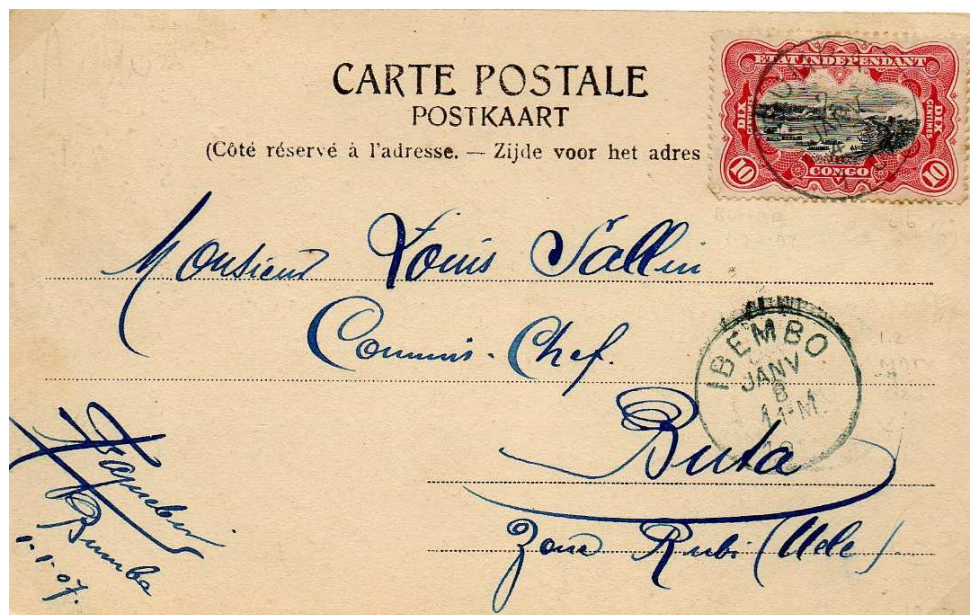 CARTE POSTALE
POSTKAART
(Côté réservé à l'adresse. — Zijde voor het adres
ETAT INDEPENDANT
DIX CENTIMES
DIX CENTIMES
10 CONGO 10
Monsieur Louis Sallin
Commis-Chef.
IBEMBO
JANV
8
11-M
Buta
Zone Rubi (Uele)
Bumba
1-1-07.